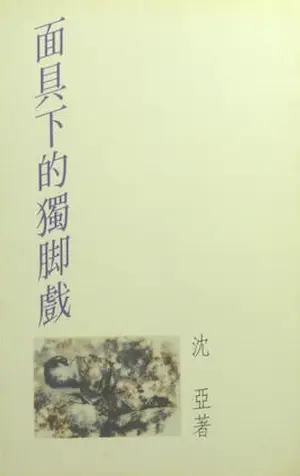 面具下的獨脚戲
沈亞著